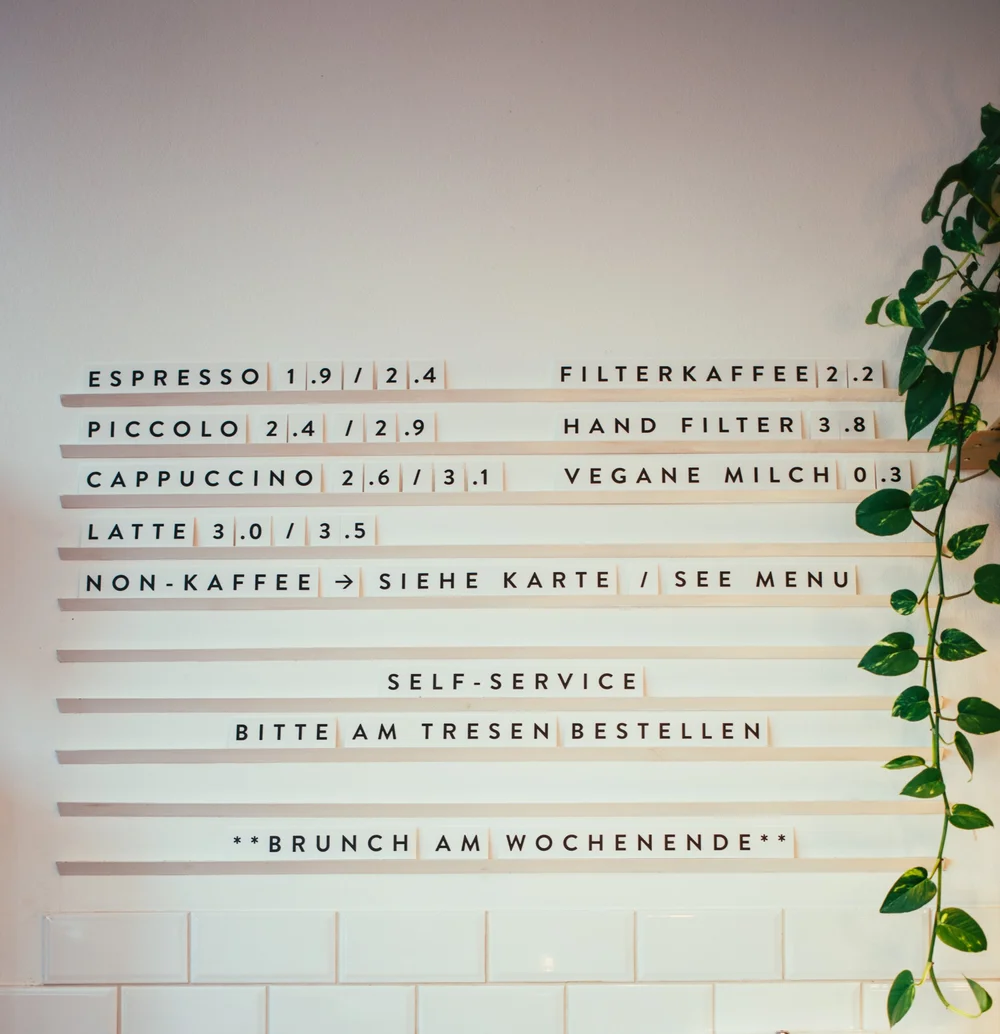 ESPRESSO 1.9 / 2.4 FILTERKAFFEE 2.2
PICCOLO 2.4 / 2.9 HAND FILTER 3.8
CAPPUCCINO 2.6 / 3.1 VEGANE MILCH 0.3
LATTE 3.0 / 3.5
NON-KAFFEE → SIEHE KARTE / SEE MENU
SELF-SERVICE
BITTE AM TRESEN BESTELLEN
**BRUNCH AM WOCHENENDE**